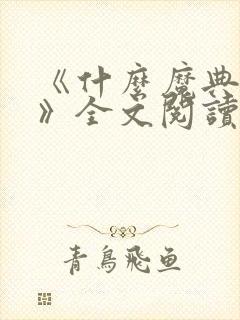 《什麼魔典
》全文閱讀
青鳥飛魚